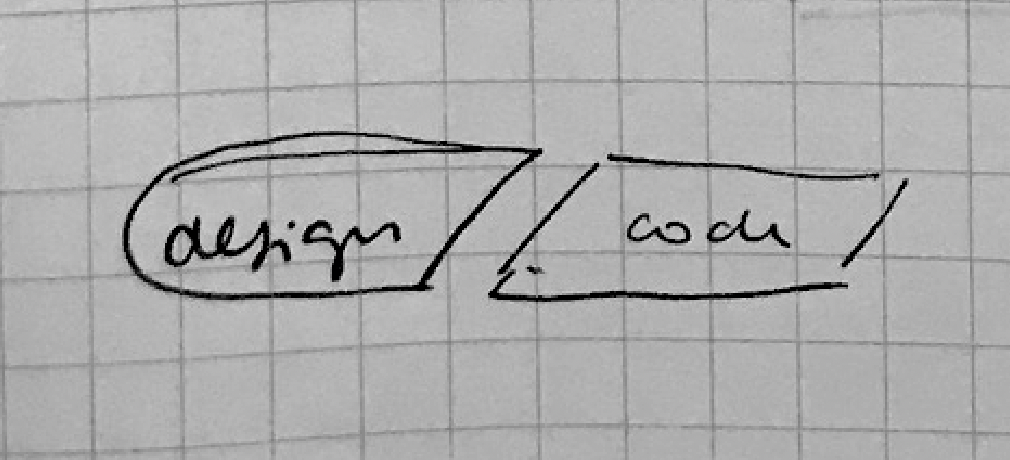 design code